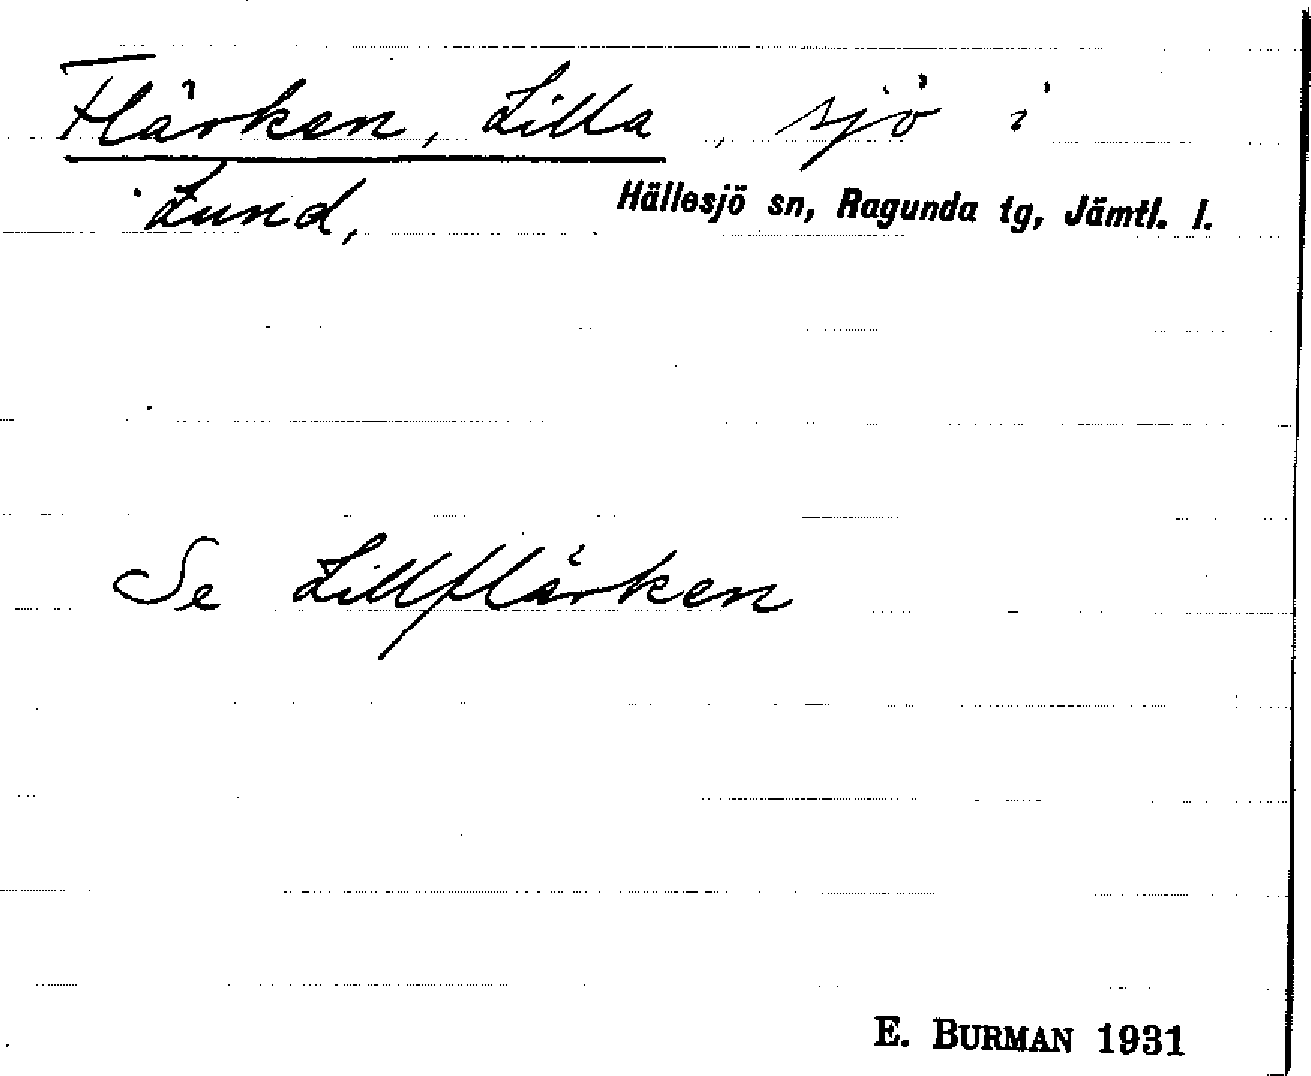 Flärken, Lilla, sjö i
Lund, Hällesjö sn, Ragunda tg, Jämtl. l.
Se Lillflärken
E. BURMAN 1931